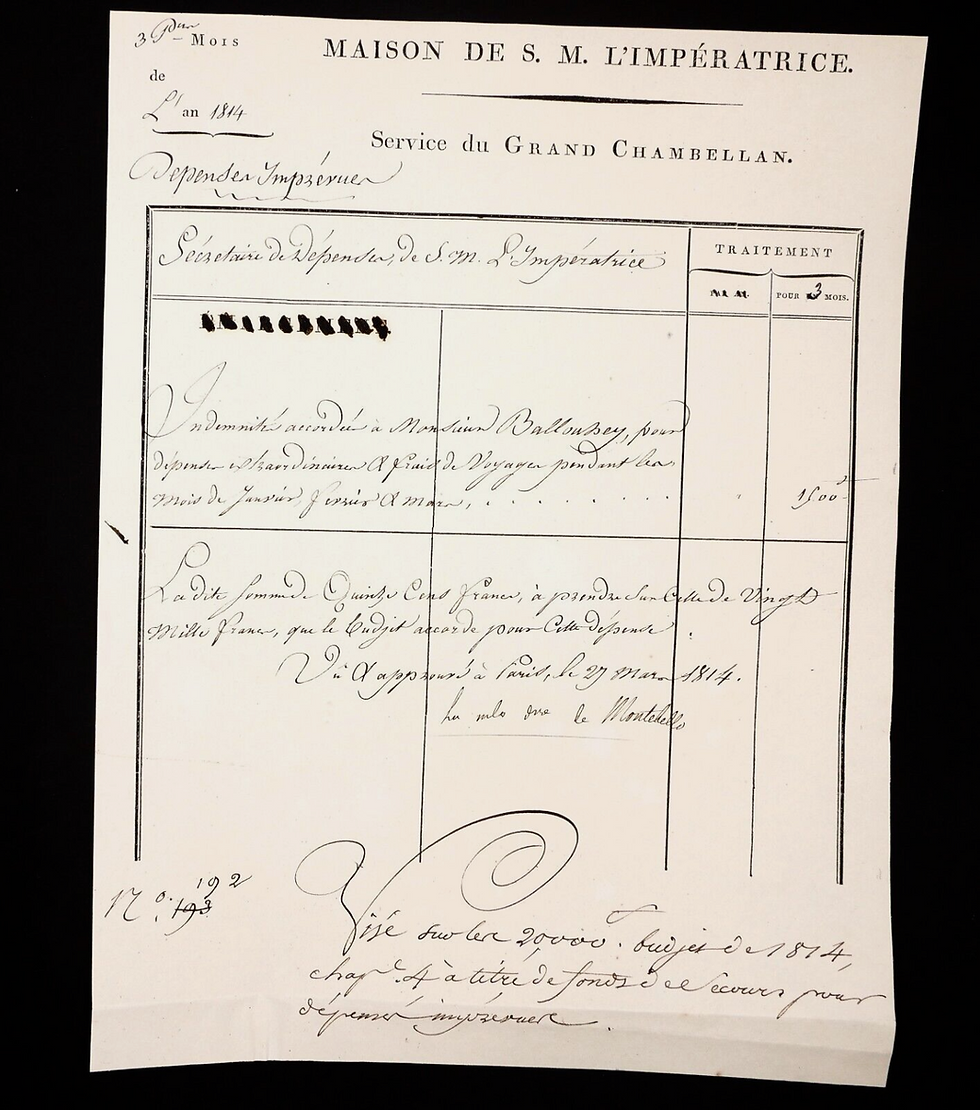 3 Pers Mois
de
L'an 1814
MAISON DE S. M. L'IMPÉRATRICE.
Service du GRAND CHAMBELLAN.
Depenses Imprévues
Sécretaire des Dépenses, de S. M. L'Impératrice
TRAITEMENT
POUR 3 MOIS.
Indemnité accordée à Monsieur Ballouhey, pour
dépenses extraordinaires & frais de Voyages pendant les
Mois de Janvier, fevrier & mars, . . . . . . . . 1500 f
La dite somme de Quinze Cens francs, à prendre sur Celle de Vingt
Mille francs, que le Budjet accorde pour Cette dépense.
Vû & approuvé à Paris, le 27 Mars 1814.
de Montebello
N.º 193 192
Visé sur les 20,000 f. budjet de 1814,
chap.e 4 à titre de fonds de Secours pour
dépenses imprévues.